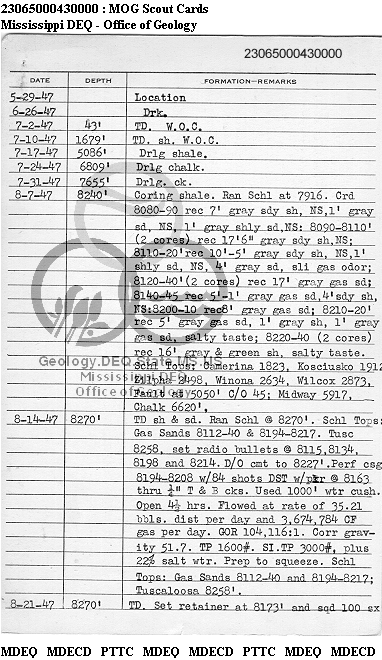 23065000430000 : MOG Scout Cards
Mississippi DEQ - Office of Geology
23065000430000
DATE DEPTH FORMATION—REMARKS
5-29-47 Location
6-26-47 Drk.
7-2-47 43' TD. W.O.C.
7-10-47 1679' TD. sh. W.O.C.
7-17-47 5086' Drlg shale.
7-24-47 6809' Drlg chalk.
7-31-47 7655' Drlg. ck.
8-7-47 8240' Coring shale. Ran Schl at 7916. Crd
8080-90 rec 7' gray sdy sh, NS,1' gray
sd, NS, 1' gray shly sd,NS: 8090-8110'
(2 cores) rec 17'6" gray sdy sh,NS;
8110-20'rec 10'-5' gray sdy sh, NS,1'
shly sd, NS, 4' gray sd, sli gas odor;
8120-40'(2 cores) rec 17' gray gas sd;
8140-45 rec 5'-1' gray gas sd,4'sdy sh,
NS:8200-10 rec8' gray gas sd; 8210-20'
rec 5' gray gas sd, 1' gray sh, 1' gray
gas sd, salty taste; 8220-40 (2 cores)
rec 16' gray & green sh, salty taste.
Schl Tops: Camerina 1823, Kosciusko 1912
Zilpha 2498, Winona 2634, Wilcox 2873,
Fault at 5050' C/O 45; Midway 5917,
Chalk 6620'.
8-14-47 8270' TD sh & sd. Ran Schl @ 8270'. Schl Tops:
Gas Sands 8112-40 & 8194-8217. Tusc
8258, set radio bullets @ 8115,8134,
8198 and 8214. D/O cmt to 8227'.Perf csg
8194-8208 w/84 shots DST w/pkr @ 8163
thru ¼" T & B cks. Used 1000' wtr cush.
Open 4½ hrs. Flowed at rate of 35.21
bbls. dist per day and 3,674,784 CF
gas per day. GOR 104,116:1. Corr grav-
ity 51.7. TP 1600#. SI.TP 3000#, plus
22% salt wtr. Prep to squeeze. Schl
Tops: Gas Sands 8112-40 and 8194-8217;
Tuscaloosa 8258'.
8-21-47 8270' TD. Set retainer at 8173' and sqd 100 sx
Geology.DEQ.State.MS.US
Mississippi DEQ
Office of Geology
MDEQ MDECD PTTC MDEQ MDECD PTTC MDEQ MDECD